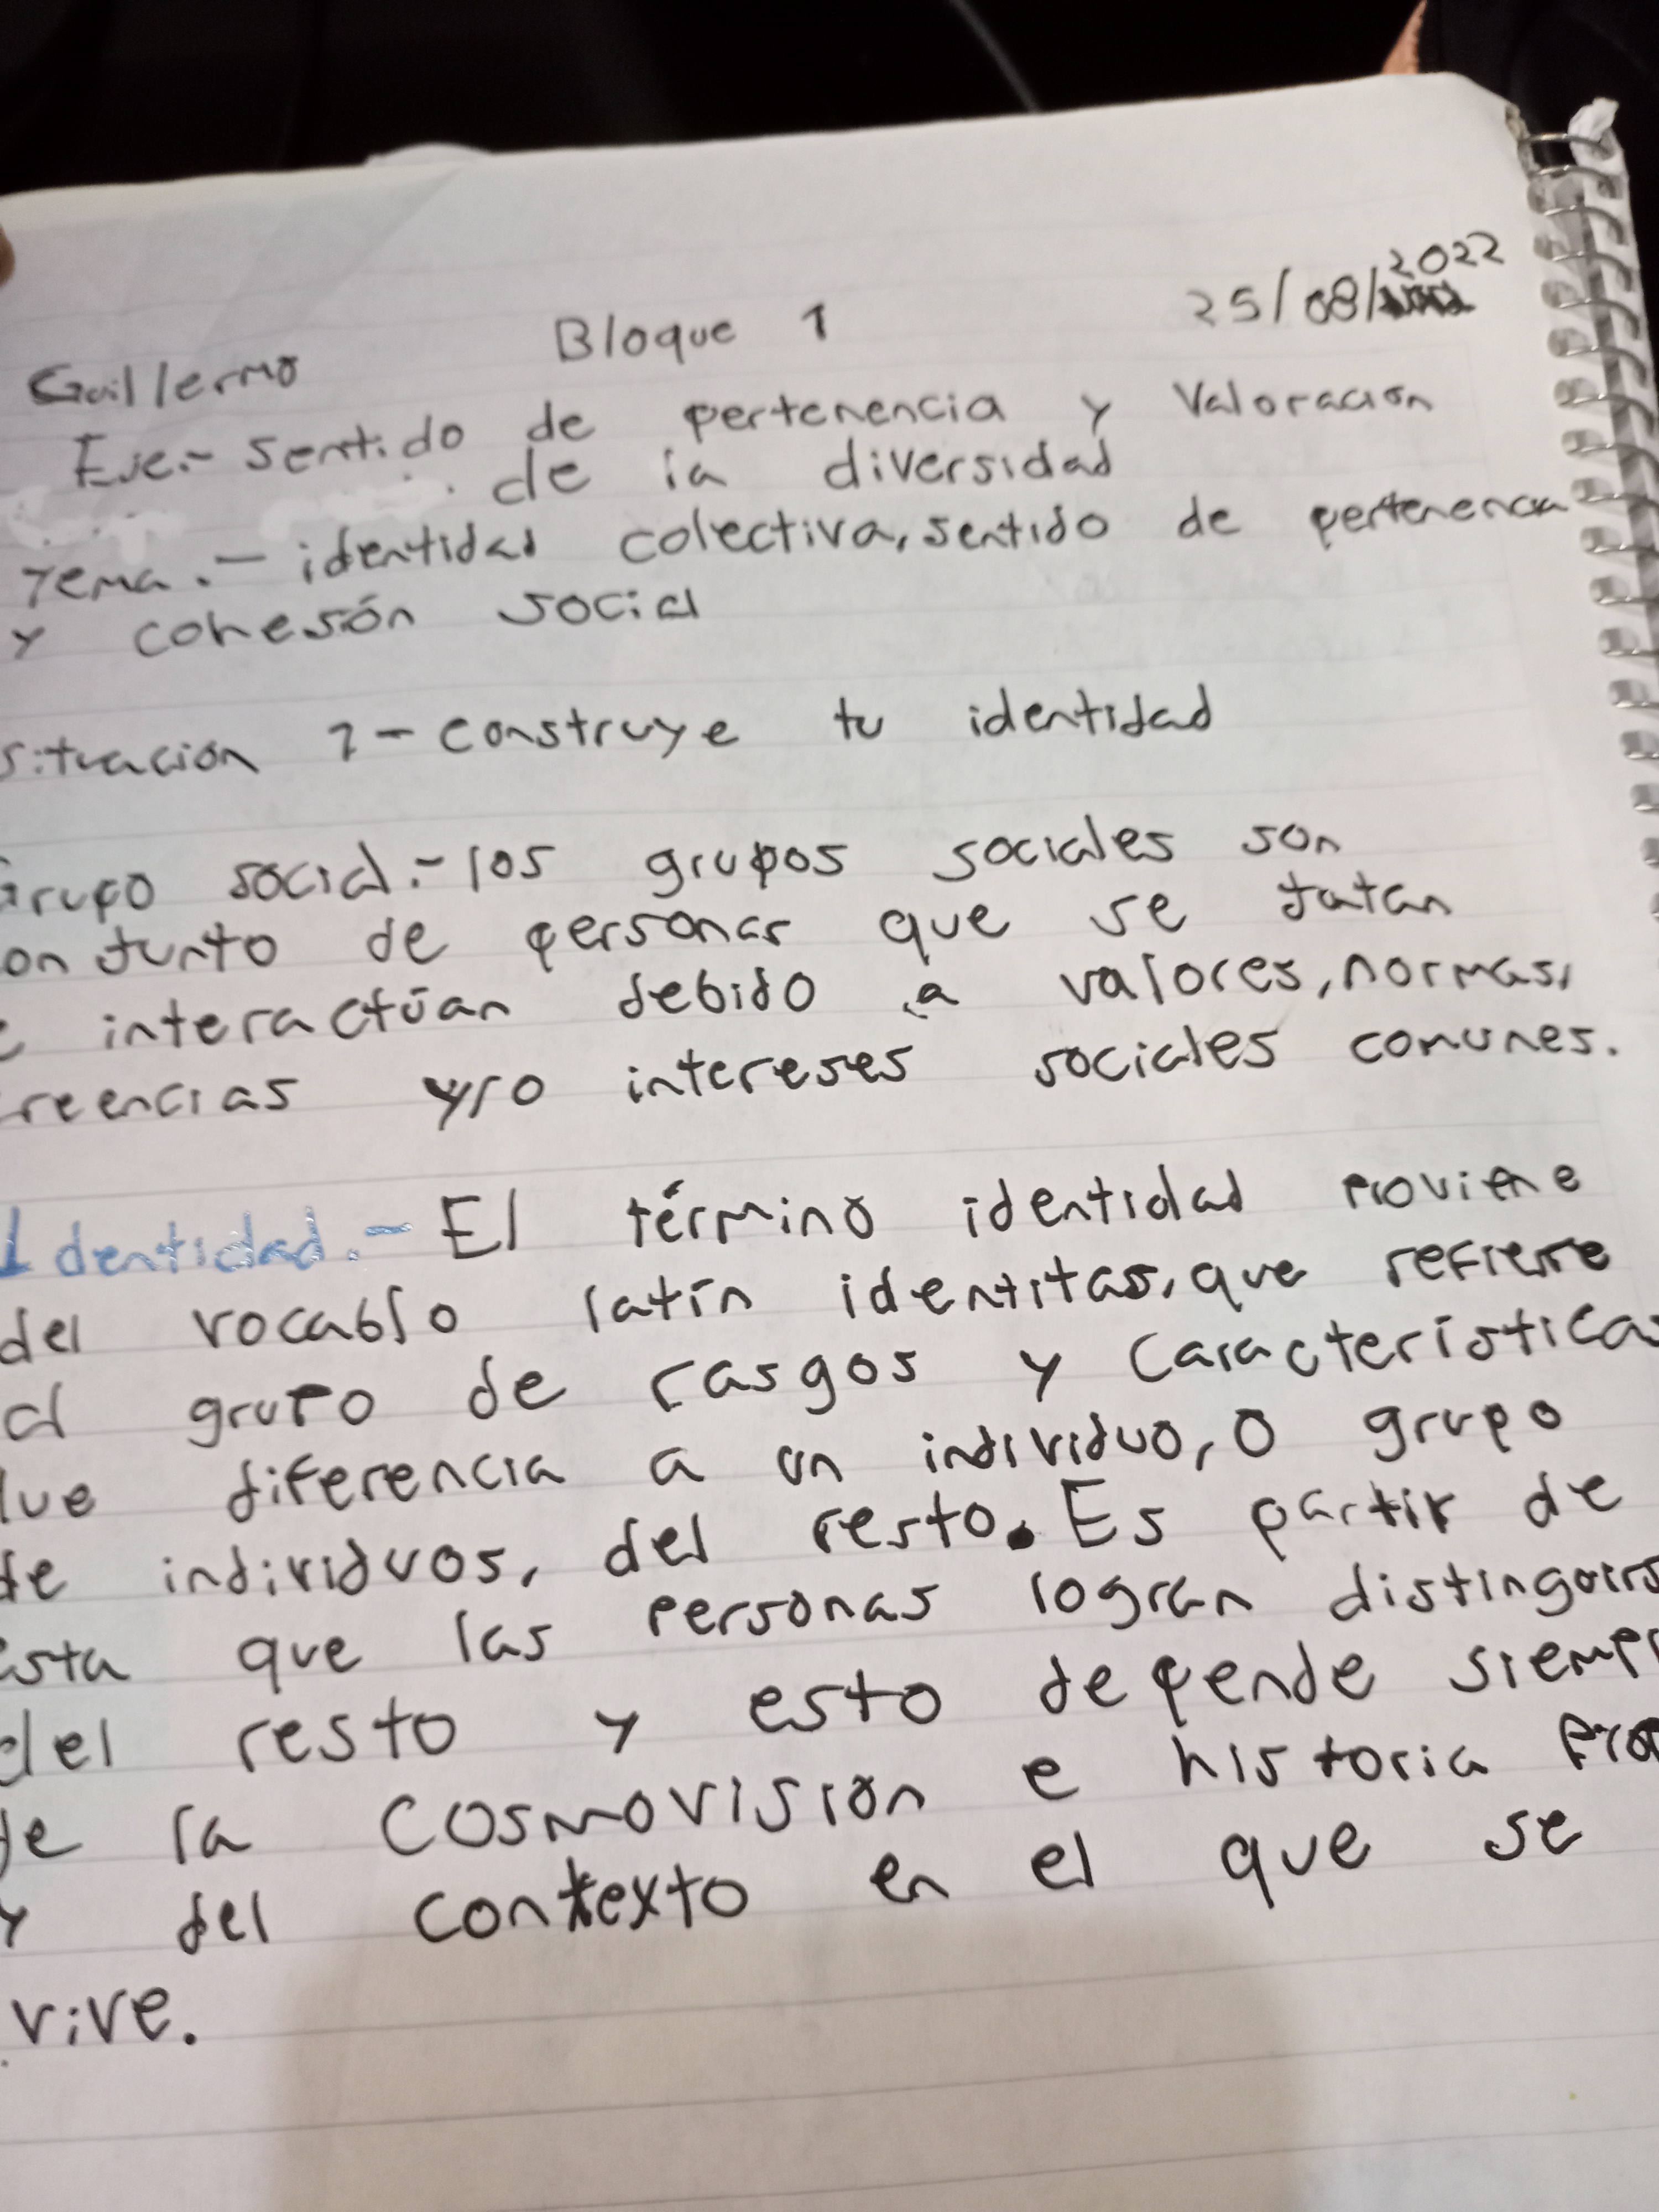 Bloque 1 25/08/2022
Guillermo
Eje.- Sentido de pertenencia y Valoración
de la diversidad
Tema.- identidad colectiva, sentido de pertenencia
y cohesón social
Situación 1- construye tu identidad
Grupo social.- los grupos sociales son
onjunto de personas que se jatan
e interactúan debido a valores, normas,
reencias y/o intereses sociales comunes.
Identidad.- El término identidad proviene
del vocablo latín identitas, que refiere
al grupo de rasgos y Características
que diferencia a un individuo, o grupo
de individuos, del resto. Es partir de
esta que las personas logran distinguirs
del resto y esto depende siempr
de la cosmovisión e historia prop
y del contexto en el que se
vive.